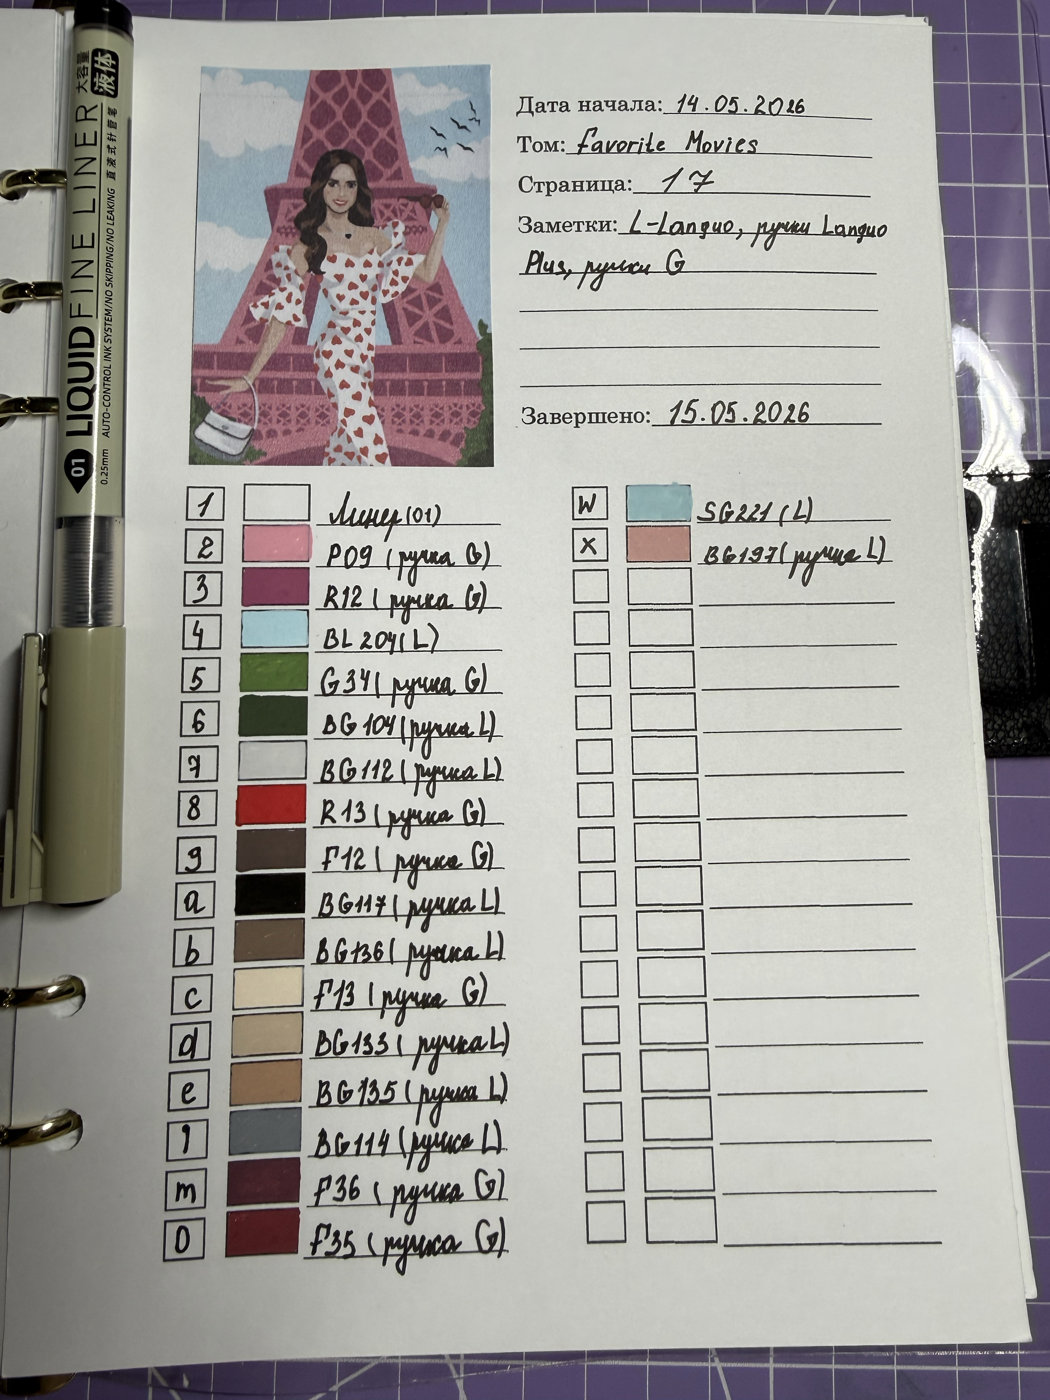 大容量 液体
01 LIQUID FINE LINER 直液式针管笔
0.25mm AUTO-CONTROL INK SYSTEM/NO SKIPPING/NO LEAKING
Дата начала: 14.05.2026
Том: Favorite Movies
Страница: 17
Заметки: L-Languo, ручки Languo
Plus, ручки G
Завершено: 15.05.2026
1 Линер (01)
2 P09 (ручка G)
3 R12 (ручка G)
4 BL 204 (L)
5 G34 (ручка G)
6 BG104 (ручка L)
7 BG112 (ручка L)
8 R13 (ручка G)
9 F12 (ручка G)
a BG117 (ручка L)
b BG136 (ручка L)
c F13 (ручка G)
d BG133 (ручка L)
e BG135 (ручка L)
q BG114 (ручка L)
m F36 (ручка G)
0 F35 (ручка G)
W SG221 (L)
X BG197 (ручка L)